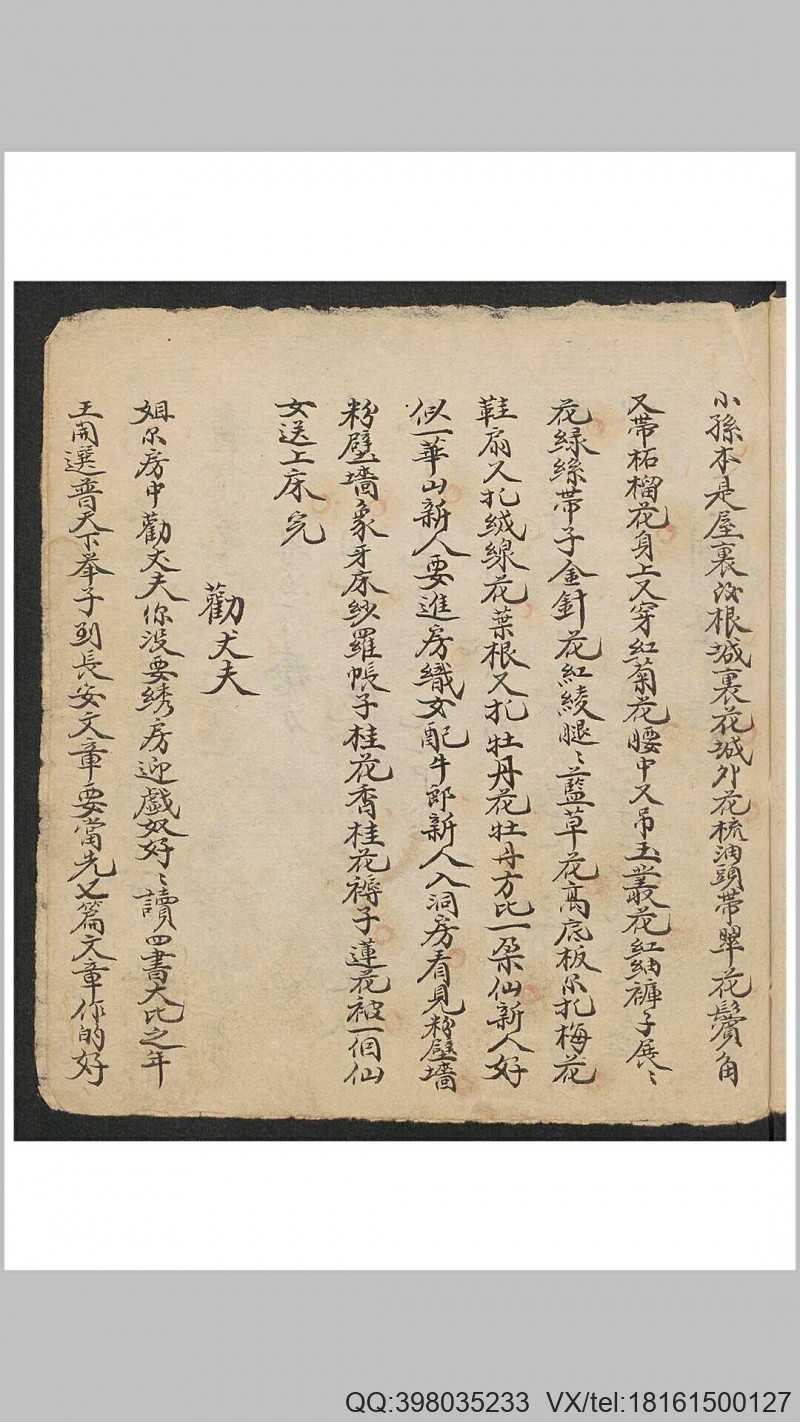 小孫本是屋裏没根城裏花城外花梳油頭帶翠花鬢角
又帶柘榴花身上又穿紅菊花腰中又吊玉叢花紅紬褲子展〻
花緑絲帶子金針花紅綾腿〻藍草花髙底板尔扎梅花
鞋扇又扎絨線花葉根又扎牡丹花牡丹方比一朶仙新人好
似一華山新人要進房織女配牛郎新人入洞房看見粉壁墻
粉壁墻象牙床紗羅帳子桂花香桂花褥子蓮花被一個仙
女送上床完
勸丈夫
姐尔房中勸丈夫你没要綉房迎戲奴好〻讀四書大比之年
王開選普天下舉子到長安文章要當先乂篇文章作的好
QQ:398035233 VX/tel:18161500127